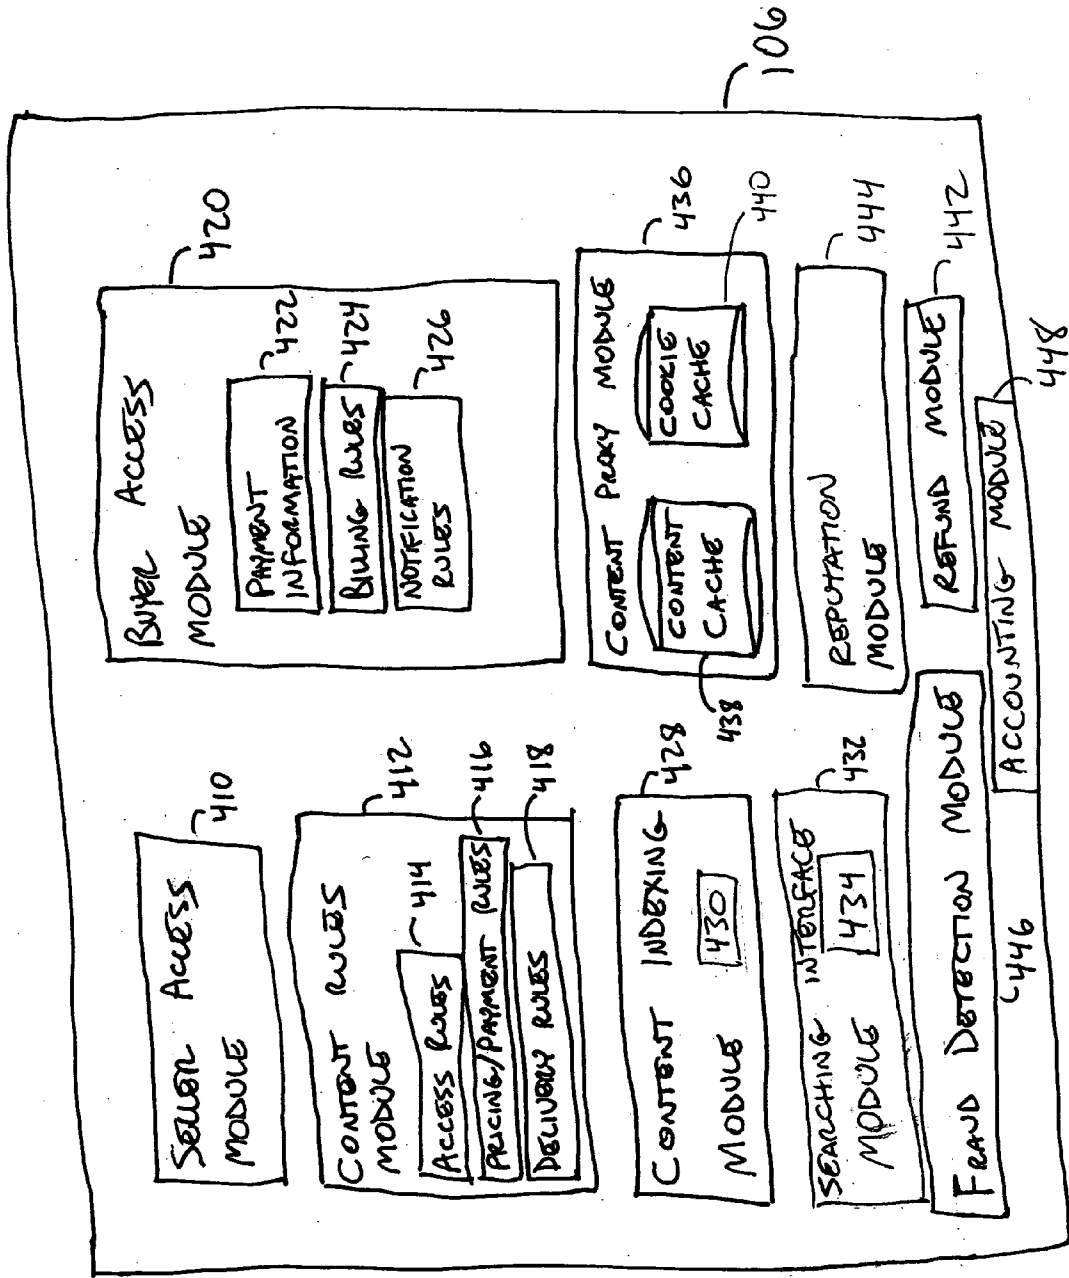 106
SELLER ACCESS
MODULE
410
CONTENT RULES
MODULE
412
ACCESS RULES
414
PRICING/PAYMENT RULES
416
DELIVERY RULES
418
CONTENT INDEXING
MODULE
430
428
SEARCHING INTERFACE
MODULE
434
432
FRAUD DETECTION MODULE
446
BUYER ACCESS
MODULE
420
PAYMENT
INFORMATION
422
BILLING RULES
424
NOTIFICATION
RULES
426
CONTENT PROXY MODULE
436
CONTENT
CACHE
438
COOKIE
CACHE
440
REPUTATION
MODULE
444
REFUND MODULE
442
ACCOUNTING MODULE
448